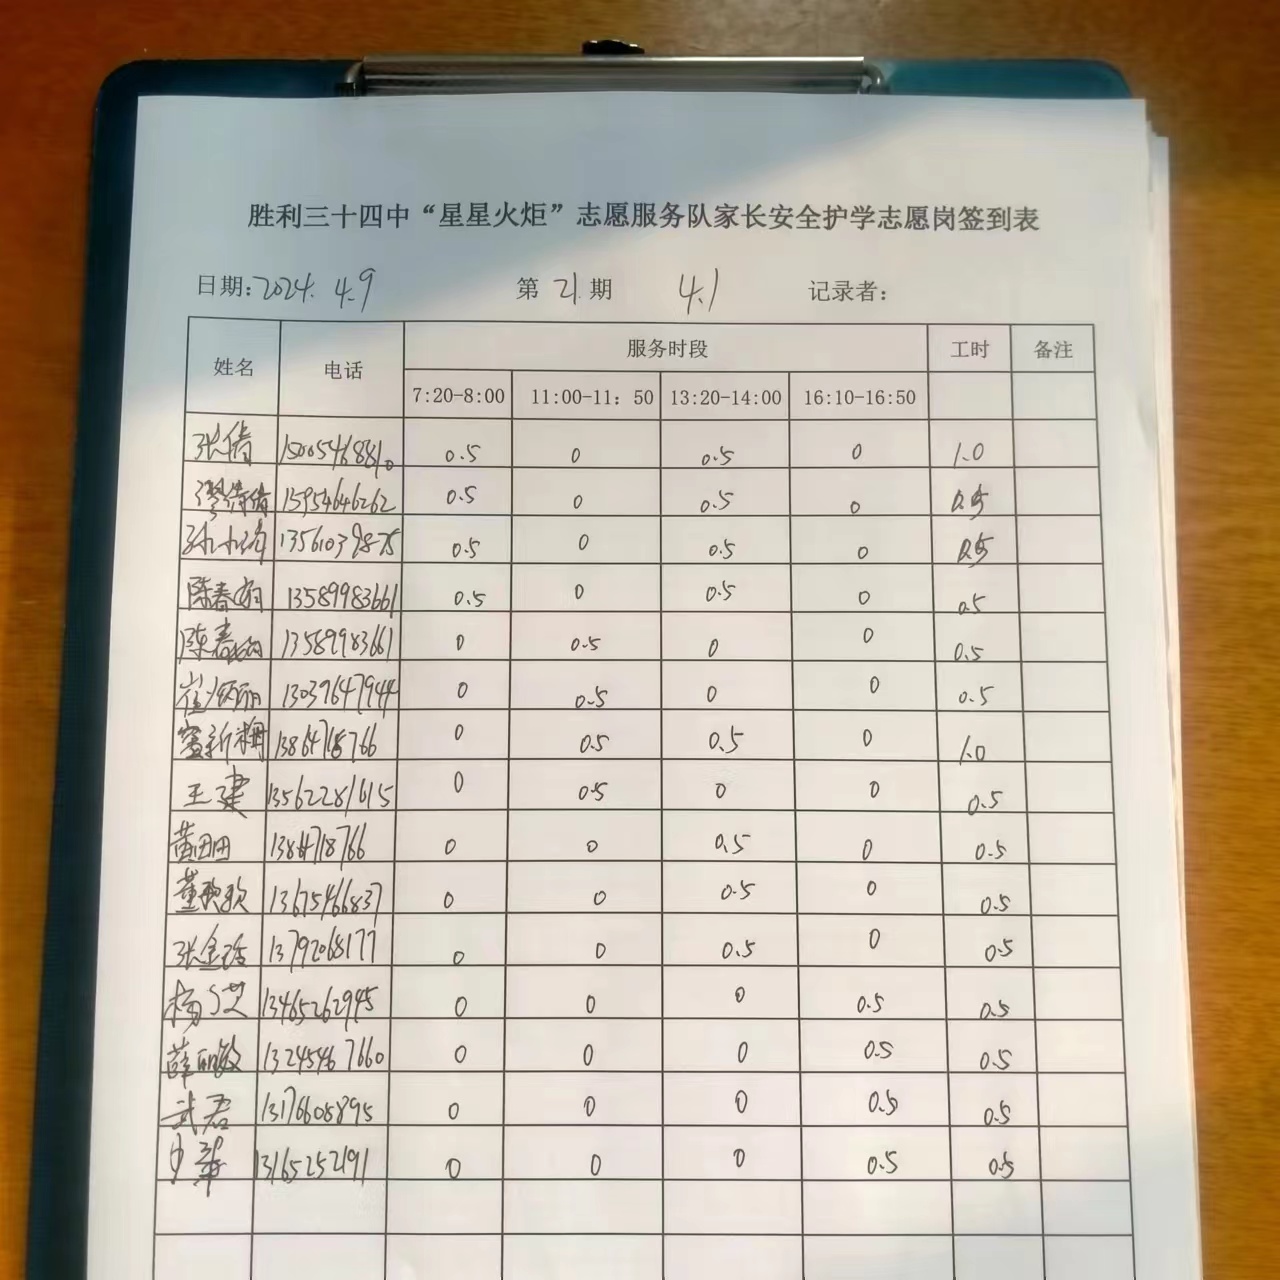 胜利三十四中“星星火炬”志愿服务队家长安全护学志愿岗签到表
日期:2024.4.9 第 21 期 4.1 记录者：
姓名 电话 服务时段 工时 备注
7:20-8:00 11:00-11：50 13:20-14:00 16:10-16:50
张倩 15005468810 0.5 0 0.5 0 1.0
15954646262 0.5 0 0.5 0 0.5
13561039875 0.5 0 0.5 0 0.5
陈春娟 13589983661 0.5 0 0.5 0 0.5
陈春娟 13589983661 0 0.5 0 0 0.5
崔炳丽 13039647944 0 0.5 0 0 0.5
窦新梅 13864718766 0 0.5 0.5 0 1.0
王建 13562281615 0 0.5 0 0 0.5
黄田田 13864718766 0 0 0.5 0 0.5
董欧欧 13675466837 0 0 0.5 0 0.5
张金玲 13792068177 0 0 0.5 0 0.5
杨 13465262945 0 0 0 0.5 0.5
薛丽敏 13245467660 0 0 0 0.5 0.5
武君 13176608895 0 0 0 0.5 0.5
13165252191 0 0 0 0.5 0.5